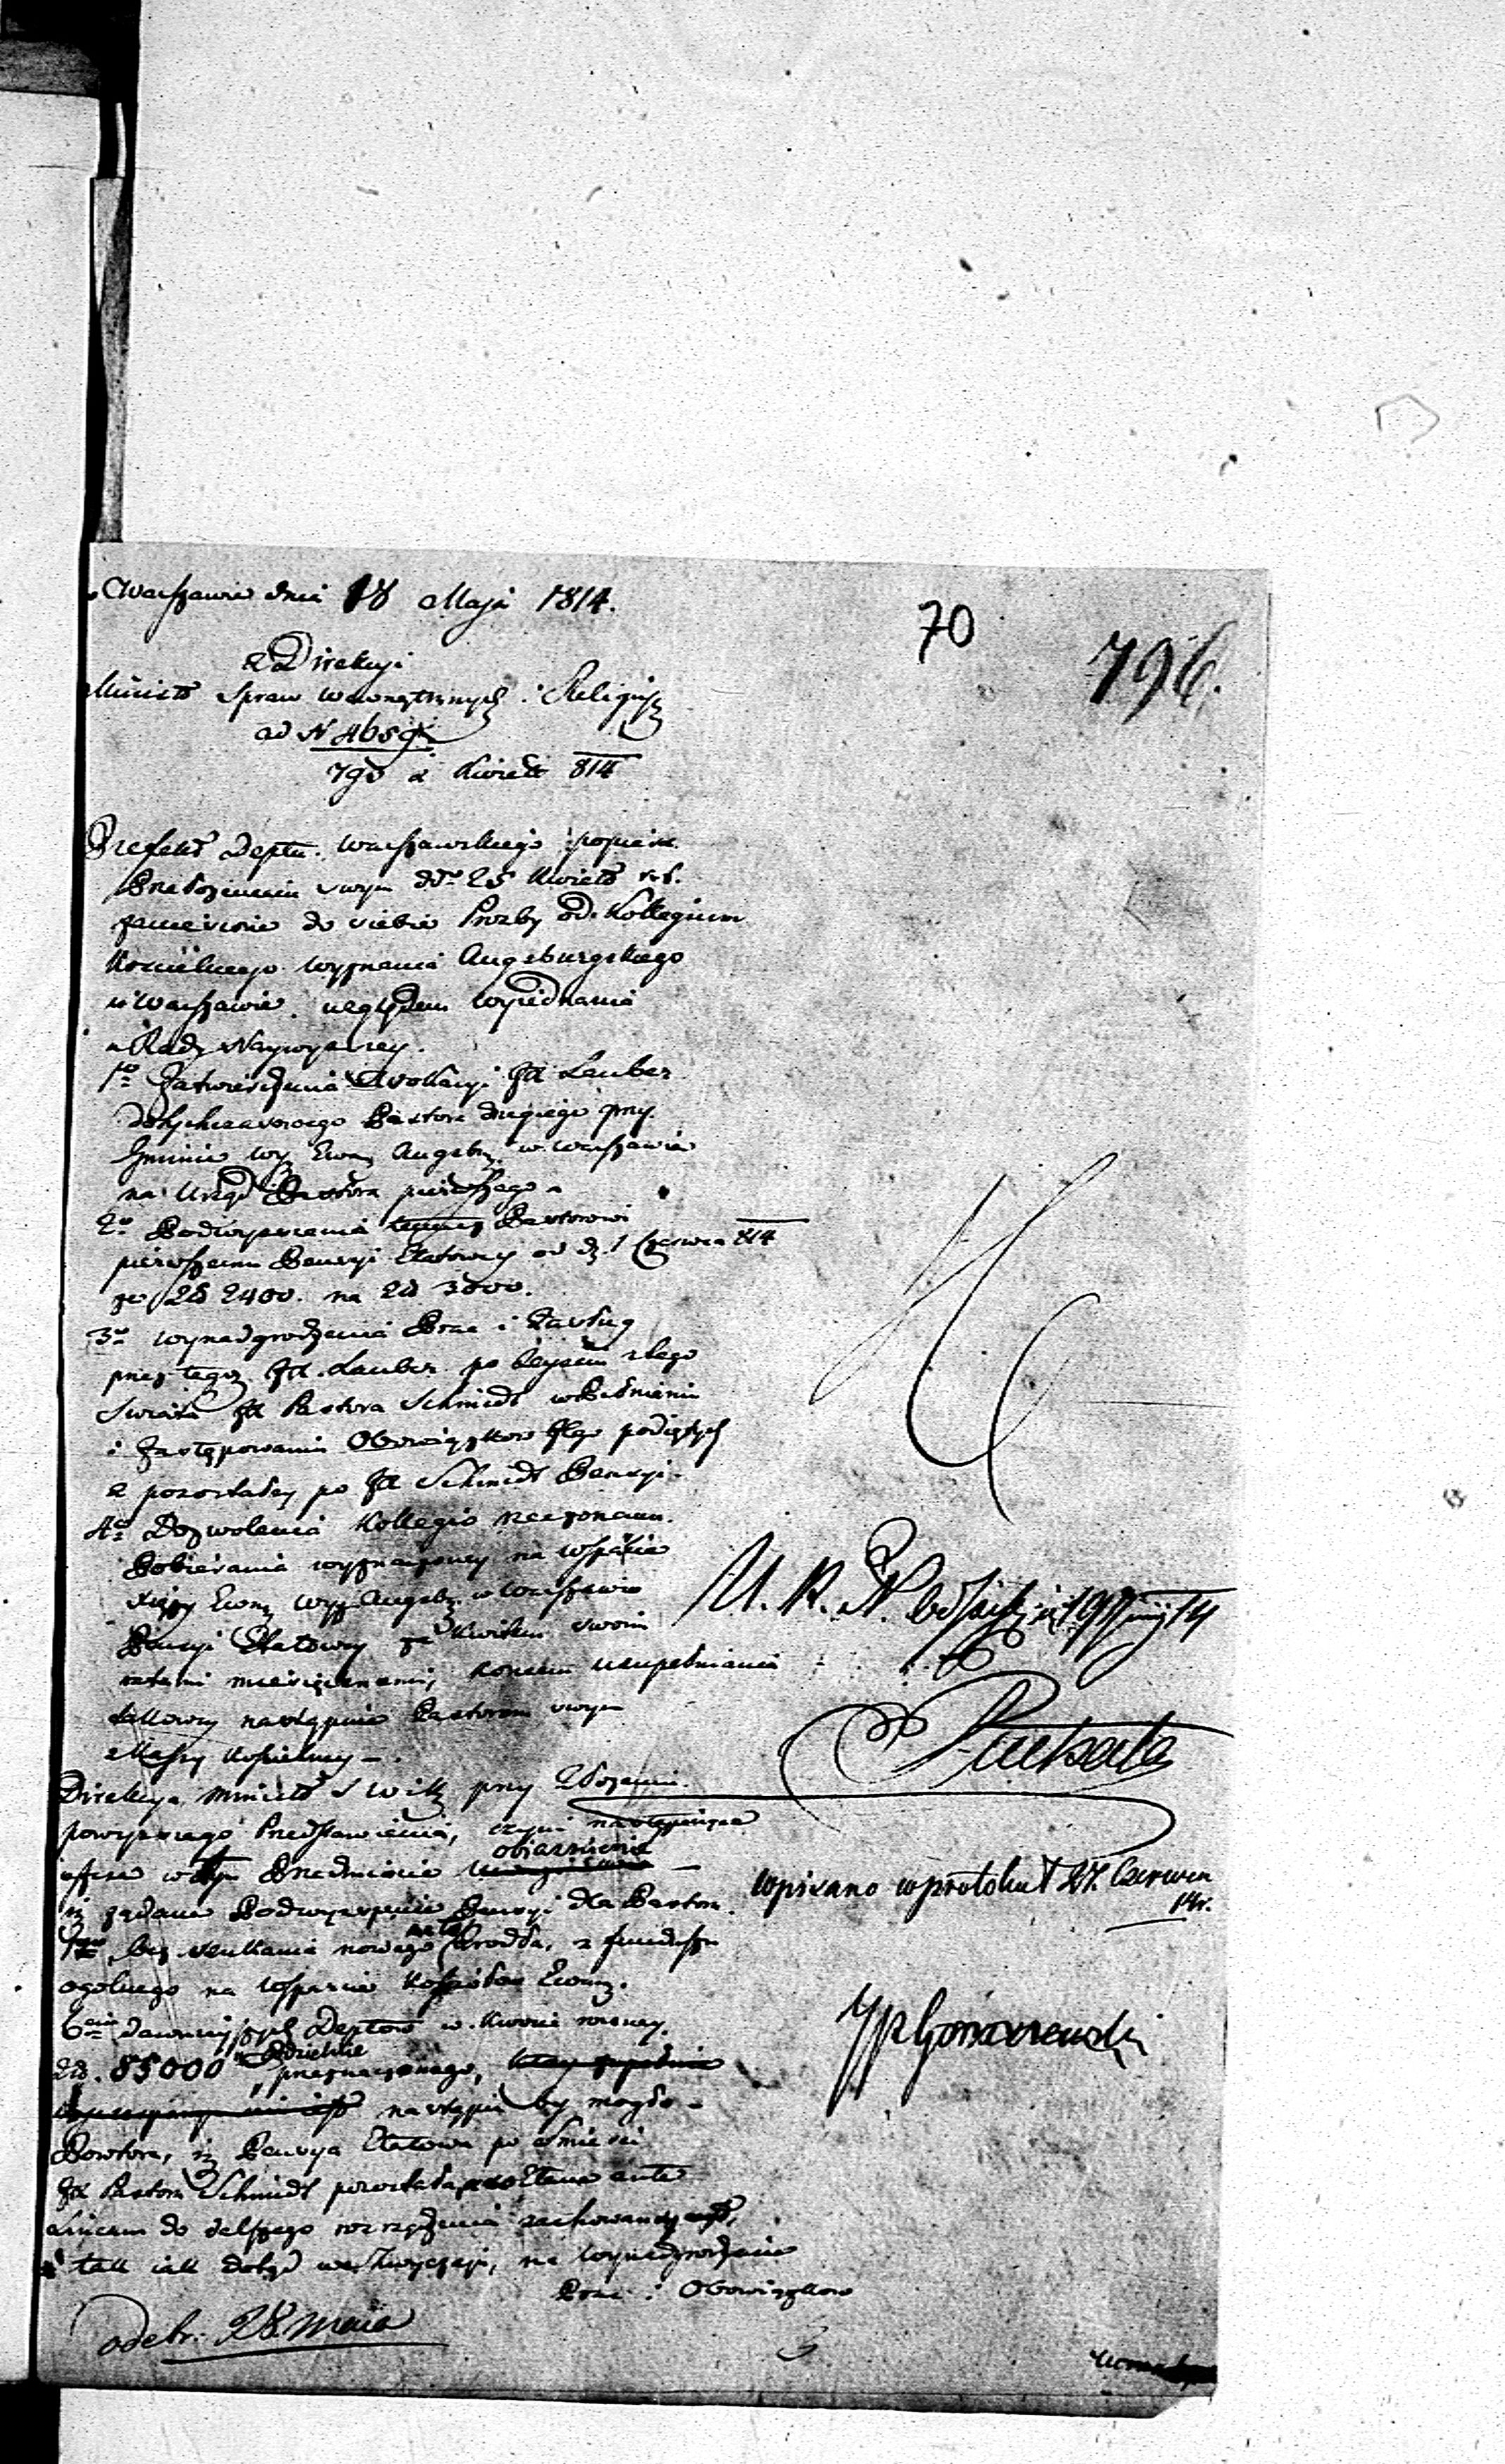 w Warszawie dnia 18 Maja 1814.
70
796.
z Direkcyi
Minista Spraw Wewnętrznych i Religijn
ad N
790 z Kwiet 814
Prefekt Deptu. Warszawskiego popiera
Przełożeniem swym dd° 25 Kwiet r. b.
zaniesione do siebie Prozby od Kollegium
Kościelnego wyznania Augsburgskiego
w Warszawie względem wyjednania
u Rady Naywyższey.
1° Zatwierdzenia Wokacyi JX Lauber
dotychczasowego Pastora drugiego przy
Gminie Wyz Ewan Augsbu. w Warszawie
na Urząd Pastora pierwszego.
2° Podwyższenia temuż Pastorowi
pierwszemu Pensyi Etatowey od d. 1 Czerwca 814
ze Zł 2400. na Zł 3000.
3° Wynadgrodzenia Prac i Zasług
przez tegoż JX. Lauber po zeyściu z tego
Świata JX Pastora Schmidt w Pełnieniu
i Zastępowaniu Obowiązkow Jego podiętych
z pozostałey po JX Schmidt Pensyi.
4° Dozwolenia Kollegio rzeczonemu
Pobierania wyznaczoney na Wsparcie
Xięży Ewan Wyz Augsbu. w Warszawie
Pensyi Etatowey za Kwitem swoim
ratami miesięcznemi, koncem uzupełniania
takowey następnie Pastorom swym
z Kassy Kościelney.
Direkcya Minist S W i R przy Złożeniu
powyższego Przedstawienia, czyni następuiące
w tym Przedmiocie obiaśnienie
iż żądane Podwyższenie Pensyi dla Pastora
1go bez szukania nowego na to Zrodła, z funduszu
ogolnego na Wsparcie Kościołow Ewan.
6ciu dawniejszych Deptow w Kwocie roczney
Zł. 85000 przeznaczonego,
nastąpić by mogło.
Powtore, iż Pensya Etatowa po śmierci
JX Pastora Schmidt pozostała
do dalszego rozrządzenia
tak iak dotąd we Zwyczaju, na Wynadgrodzenie
Prac i Obowiązkow
odebr: 28. maia
U. R. N.
wpisano w protokuł 27. Czerwca
14r.